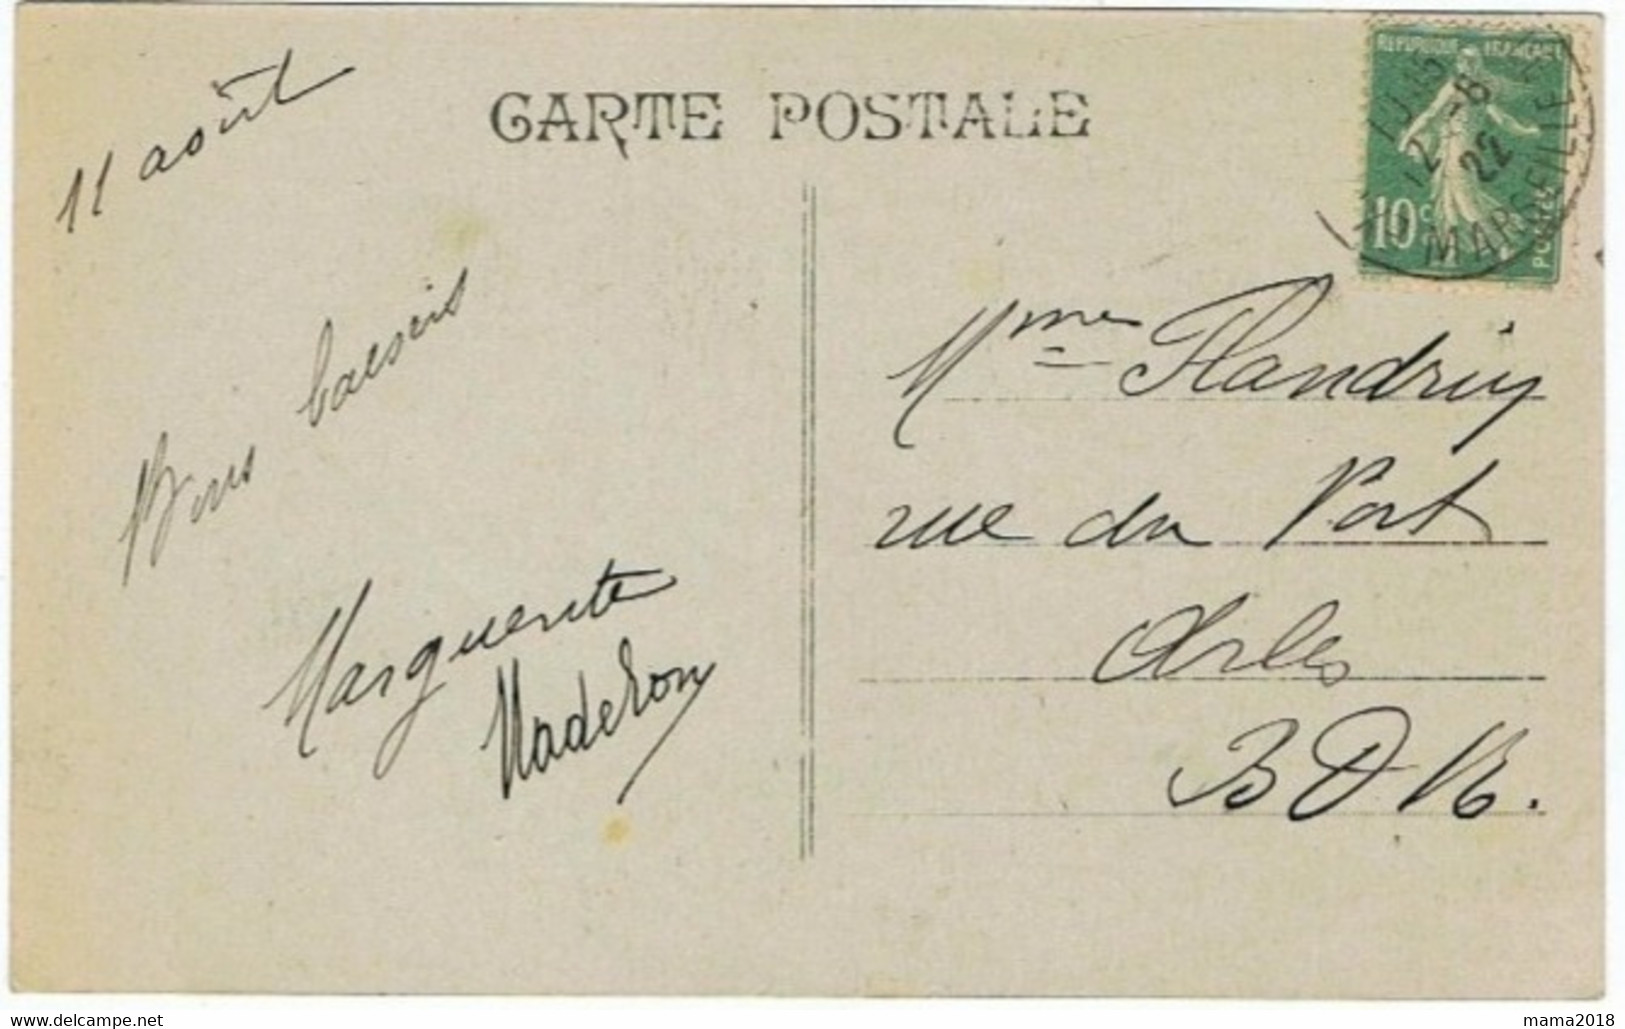 11 août
CARTE POSTALE
REPUBLIQUE FRANÇAISE
10c
POSTES
12 -8
22
MARSEILLE
Bons baisers
Marguerite
Mme Flandrin
rue du Port
Arles
B D R.
www.delcampe.net
mama2018